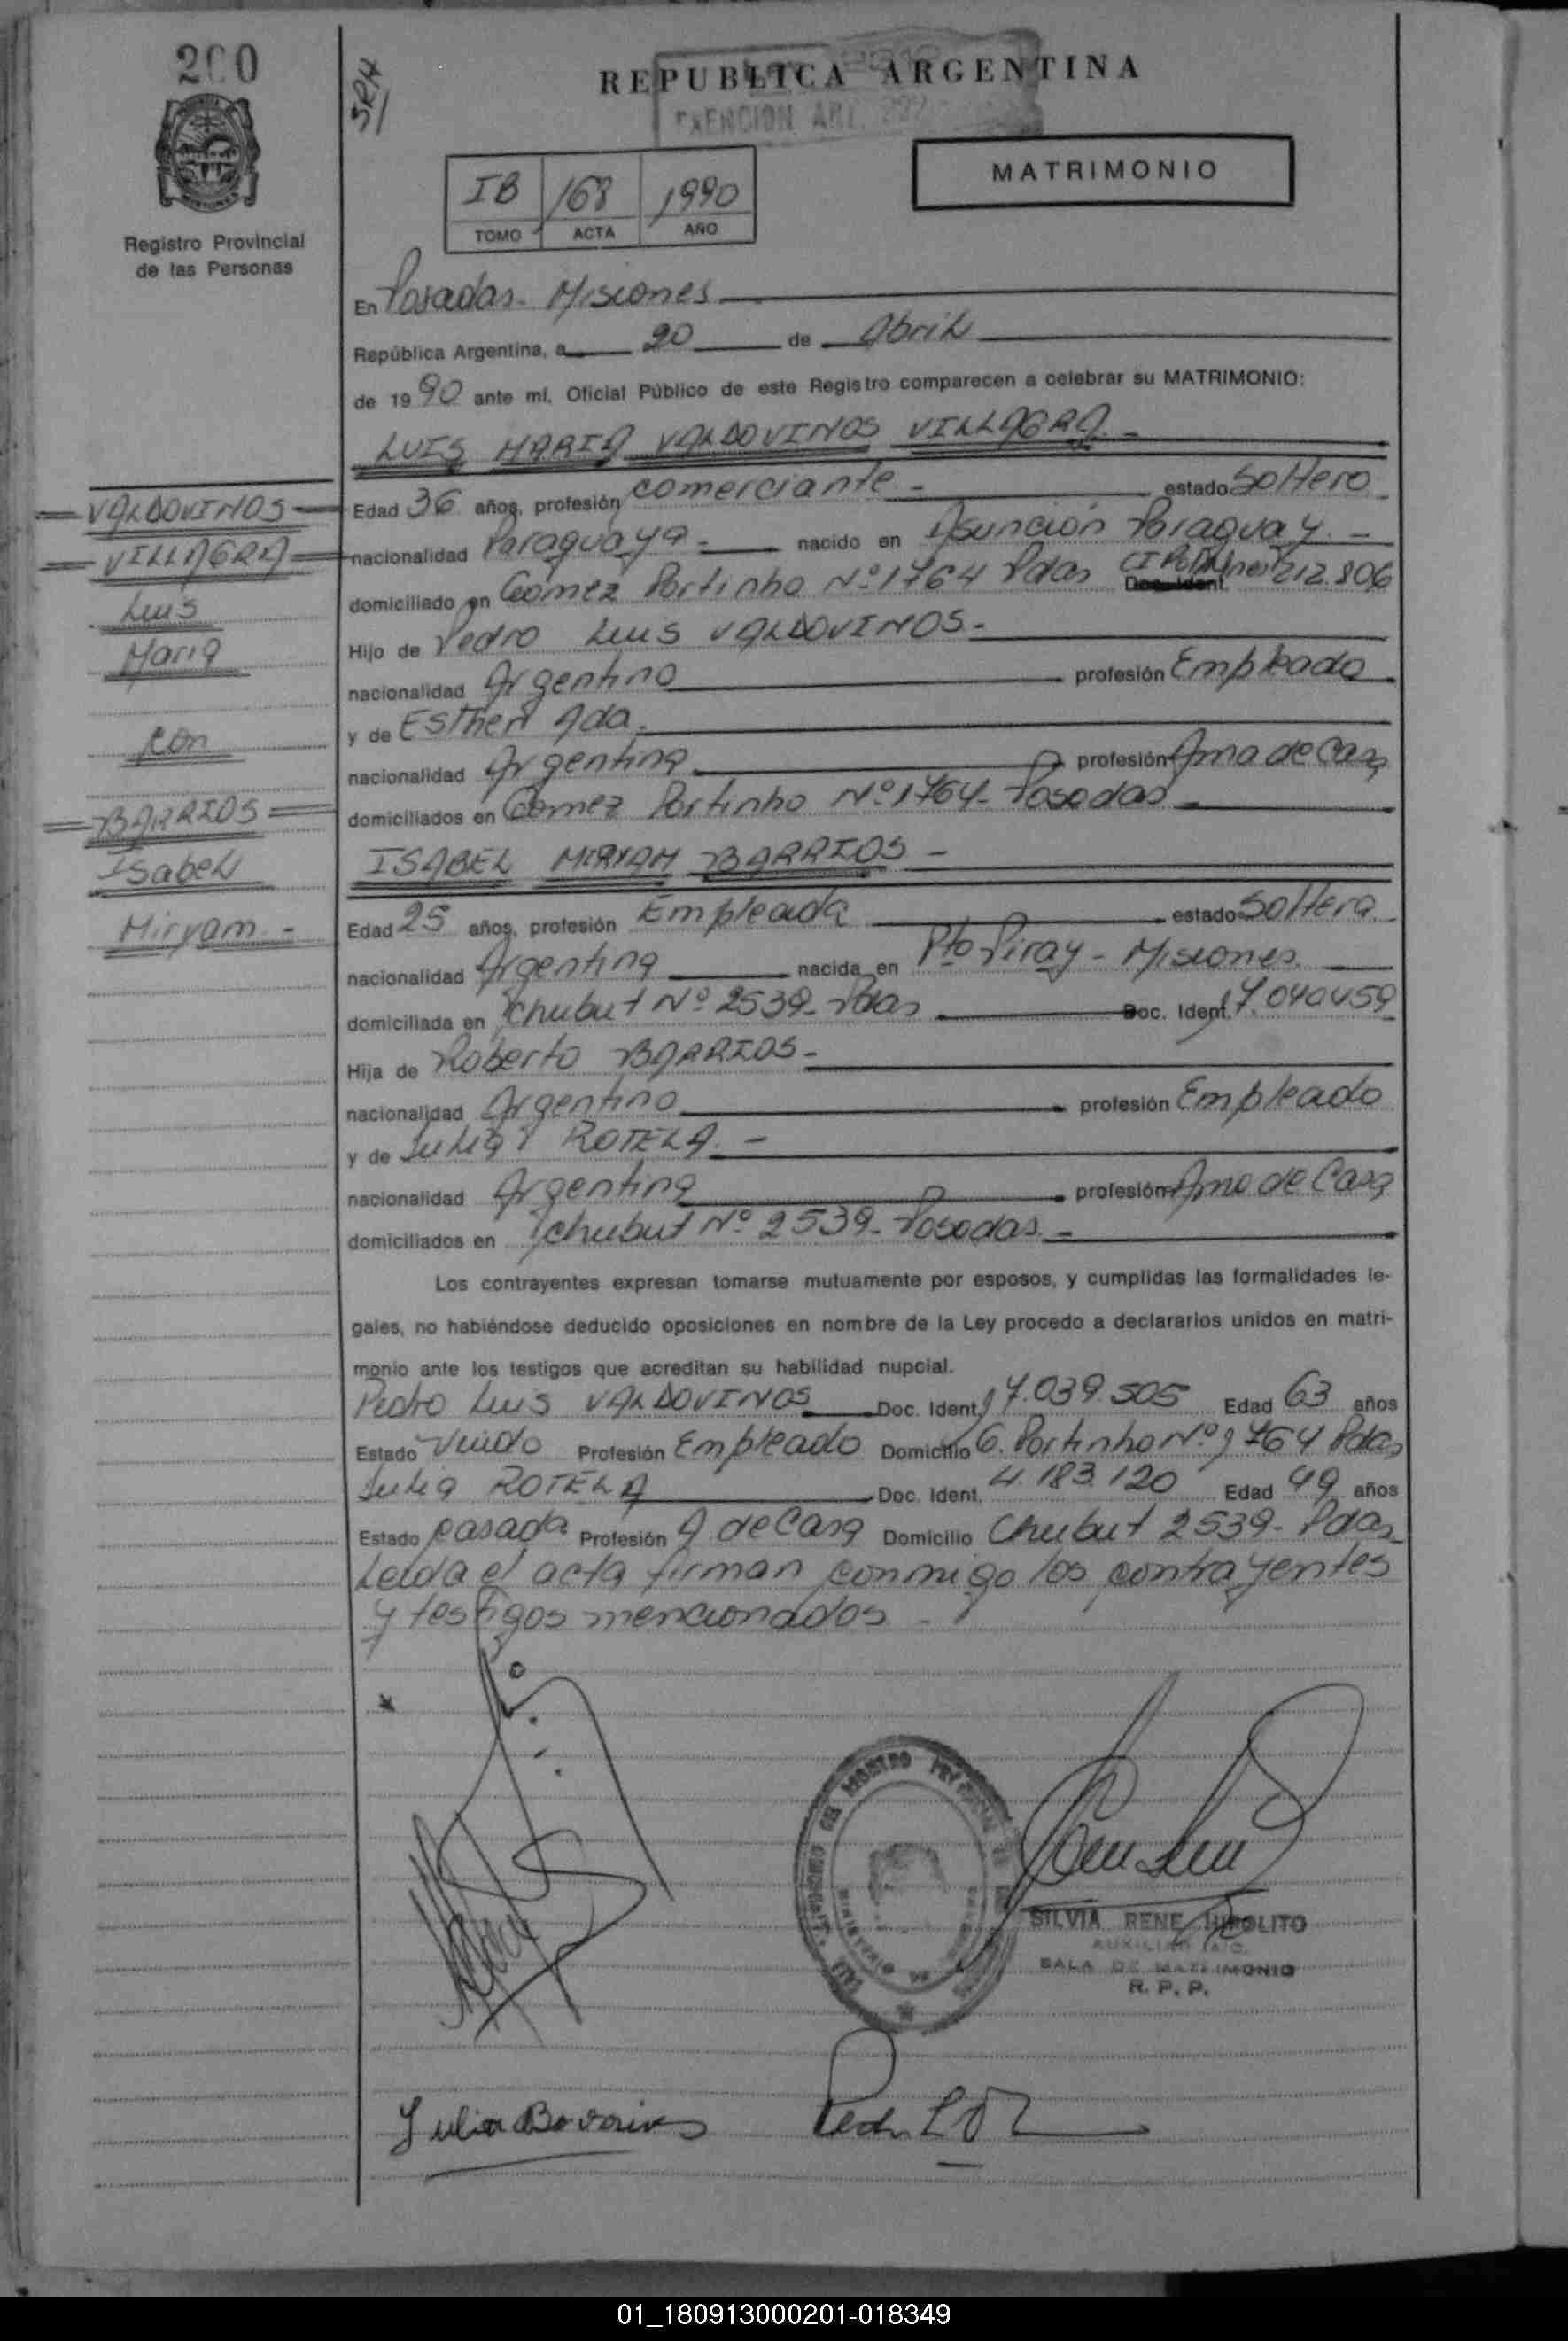 200
SRH
REPUBLICA ARGENTINA
EXENCION ART.
MATRIMONIO
IB 168 1990
TOMO ACTA AÑO
Registro Provincial
de las Personas
En Posadas - Misiones
República Argentina, a 20 de Abril
de 1990 ante mí, Oficial Público de este Registro comparecen a celebrar su MATRIMONIO:
LUIS MARIA VALDOVINOS VILLAGRA -
VALDOVINOS
VILLAGRA
Luis
Maria
con
BARRIOS
Isabel
Miryam -
Edad 36 años, profesión comerciante - estado Soltero
nacionalidad Paraguaya - nacido en Asunción Paraguay. -
domiciliado en Gomez Portinho Nº 1764 Pdas Doc. Ident. 212.806
Hijo de Pedro Luis VALDOVINOS -
nacionalidad Argentino profesión Empleado
y de Esther Ada.
nacionalidad Argentina profesión Ama de Casa
domiciliados en Gomez Portinho Nº 1764 - Posadas -
ISABEL MIRYAM BARRIOS -
Edad 25 años, profesión Empleada estado Soltera
nacionalidad Argentina nacida en Pto Piray - Misiones.
domiciliada en Chubut Nº 2539 - Pdas Doc. Ident. 17.040459
Hija de Roberto BARRIOS -
nacionalidad Argentino profesión Empleado
y de Julia ROTELA. -
nacionalidad Argentina profesión Ama de Casa
domiciliados en Chubut Nº 2539 - Posadas. -
Los contrayentes expresan tomarse mutuamente por esposos, y cumplidas las formalidades le-
gales, no habiéndose deducido oposiciones en nombre de la Ley procedo a declararlos unidos en matri-
monio ante los testigos que acreditan su habilidad nupcial.
Pedro Luis VALDOVINOS Doc. Ident. 17.039.505 Edad 63 años
Estado Viudo Profesión Empleado Domicilio G. Portinho Nº 1764 Pdas
Julia ROTELA Doc. Ident. 4.183.120 Edad 49 años
Estado casada Profesión A de Casa Domicilio Chubut 2539 - Pdas
Leida el acta firman conmigo los contrayentes
y testigos mencionados -
SILVIA RENE HIPOLITO
AUXILIAR
SALA DE MATRIMONIO
R. P. P.
Julia
01_180913000201-018349